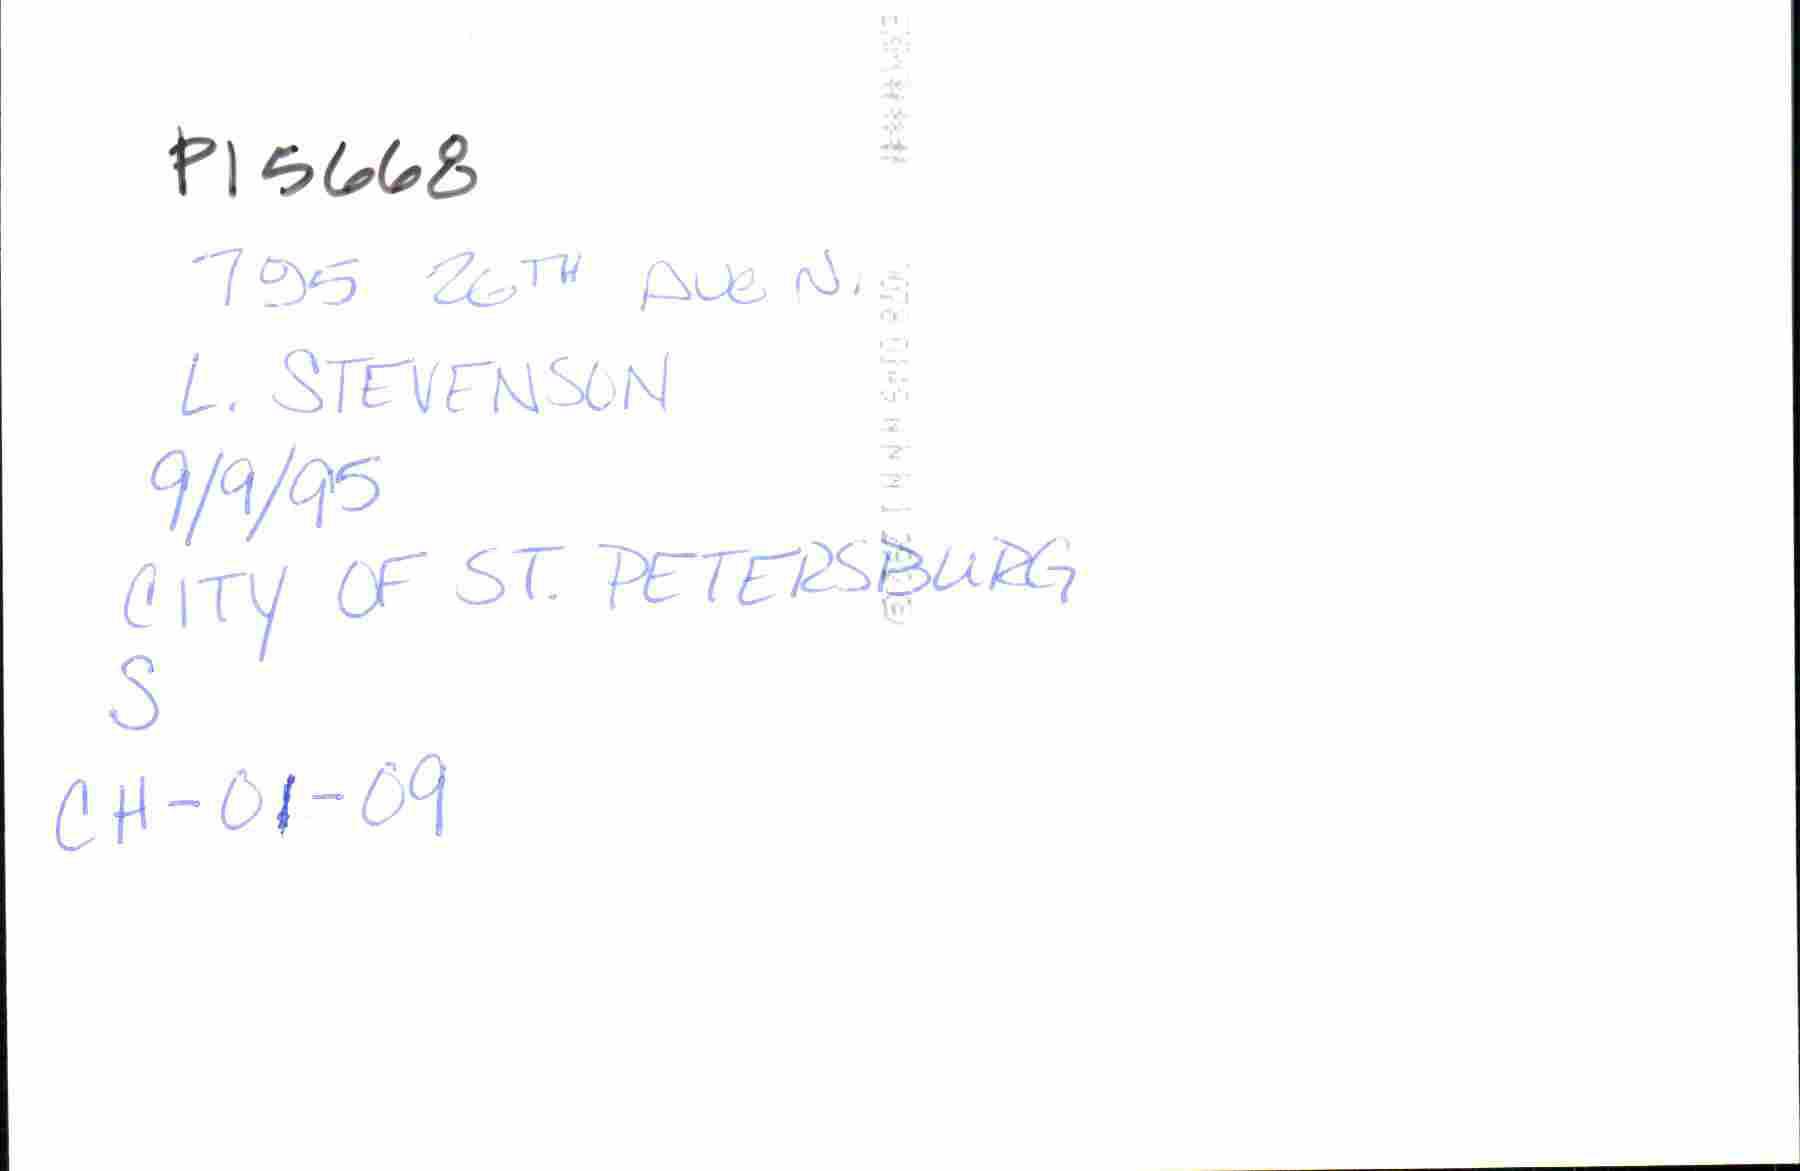 PI5668
795 26TH AVE N.
L. STEVENSON
9/9/95
CITY OF ST. PETERSBURG
S
CH-01-09